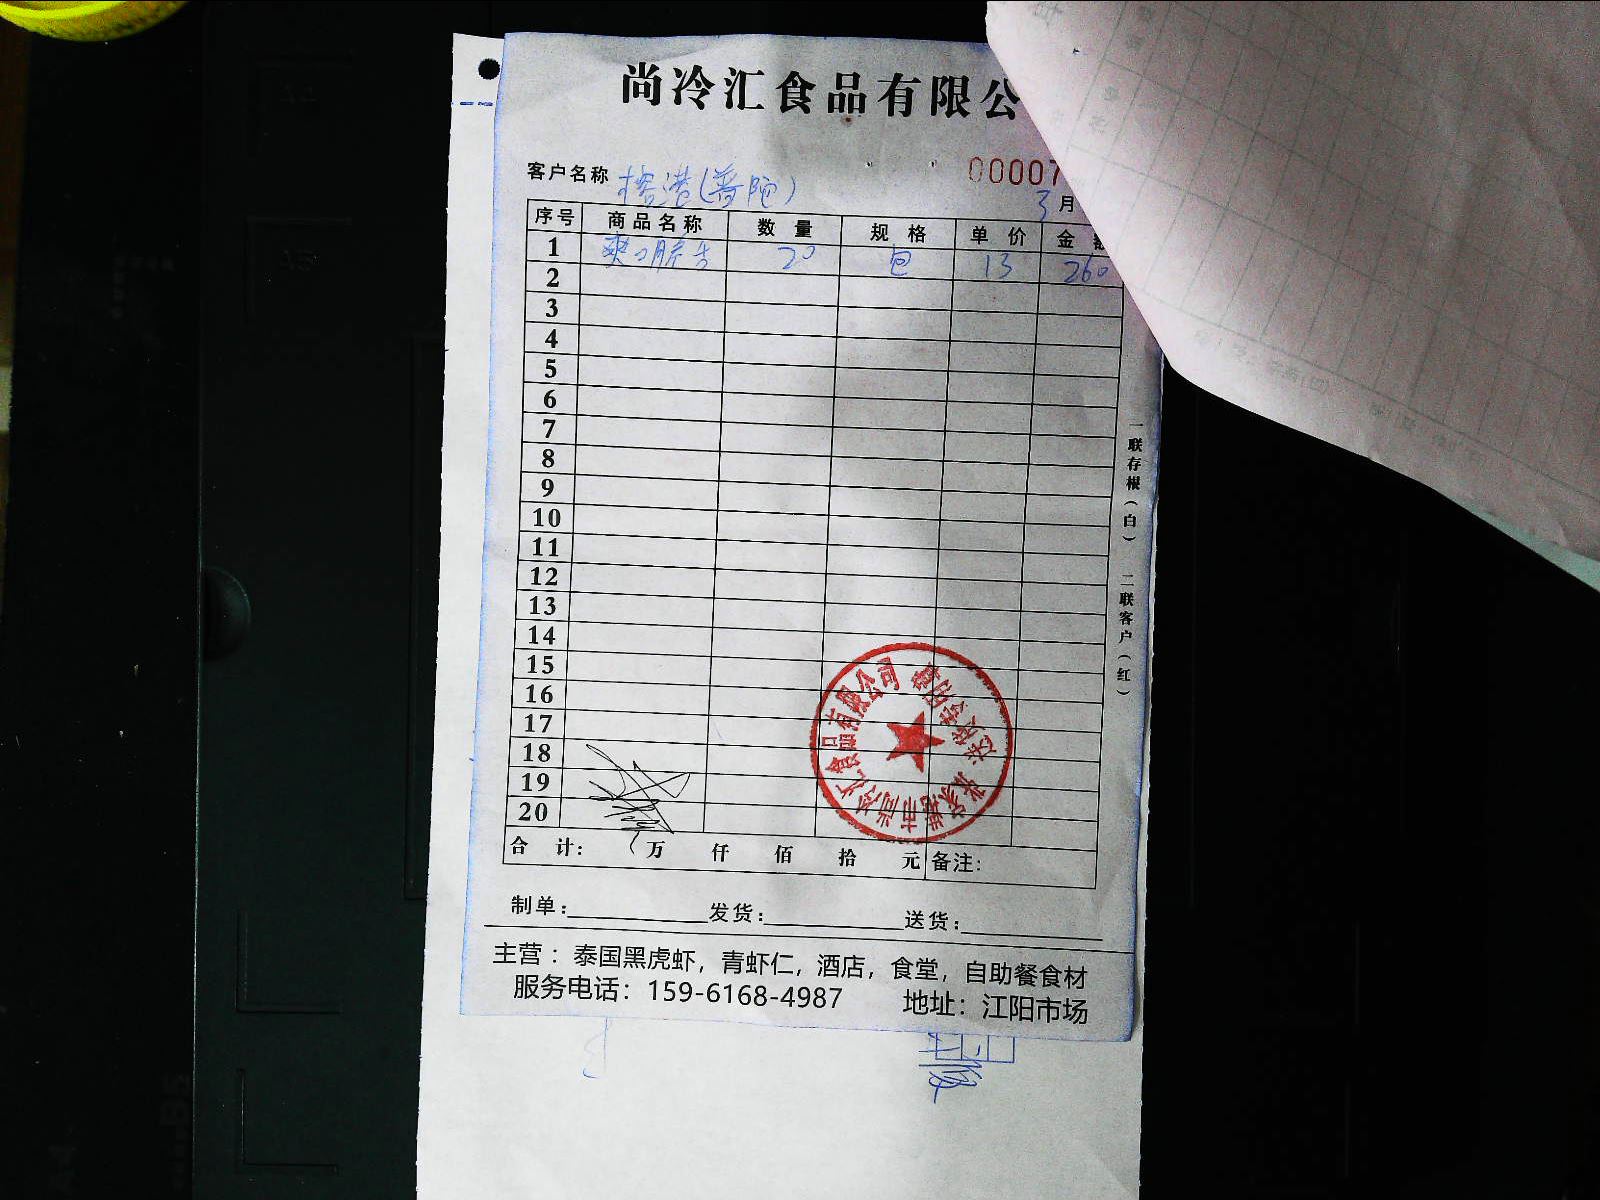 尚冷汇食品有限公
客户名称 榕港(普陀)
00007
3月
序号 商品名称 数量 规格 单价 金额
1 爽口脆 20 包 13 260
2
3
4
5
6
7
8
9
10
11
12
13
14
15
16
17
18
19
20
合计: 万 仟 佰 拾 元 备注:
制单: 发货: 送货:
主营：泰国黑虎虾，青虾仁，酒店，食堂，自助餐食材
服务电话：159-6168-4987 地址：江阳市场
一联存根(白) 二联客户(红)
张家港市尚冷汇食品有限公司